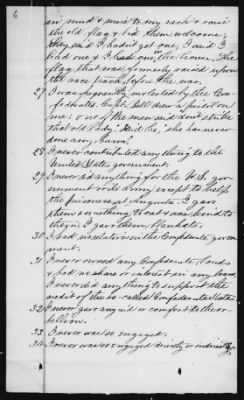 6
in mud & mire to my neck & raise
the old flag & bid them welcome;
they said I hadn't got one, I said I
had one & I had on the house. The
flag, that was formerly raised upon
the race track before the war.
27 I was frequently molested by the Con-
federates. Capt. Bell drew a pistol on
me: one of the men said don't strike
that old lady, said he, she has never
done any harm.
28 I never contributed anything to the
United States government.
29 I never did anything for the U.S. gov-
ernment or its army except to help
the prisoners at Augusta. I gave
them something to eat & was kind to
them. I gave them blankets.
30 I had no relatives in the Confederate govern
ment.
31 I never owned any Confederate bonds
& had no share or interest in any loan
I never did anything to support the
credit of the so-called Confederate States.
32 I never gave any aid or comfort to the re-
bellion.
33 I never was so engaged.
34 I never was so engaged directly or indirectly